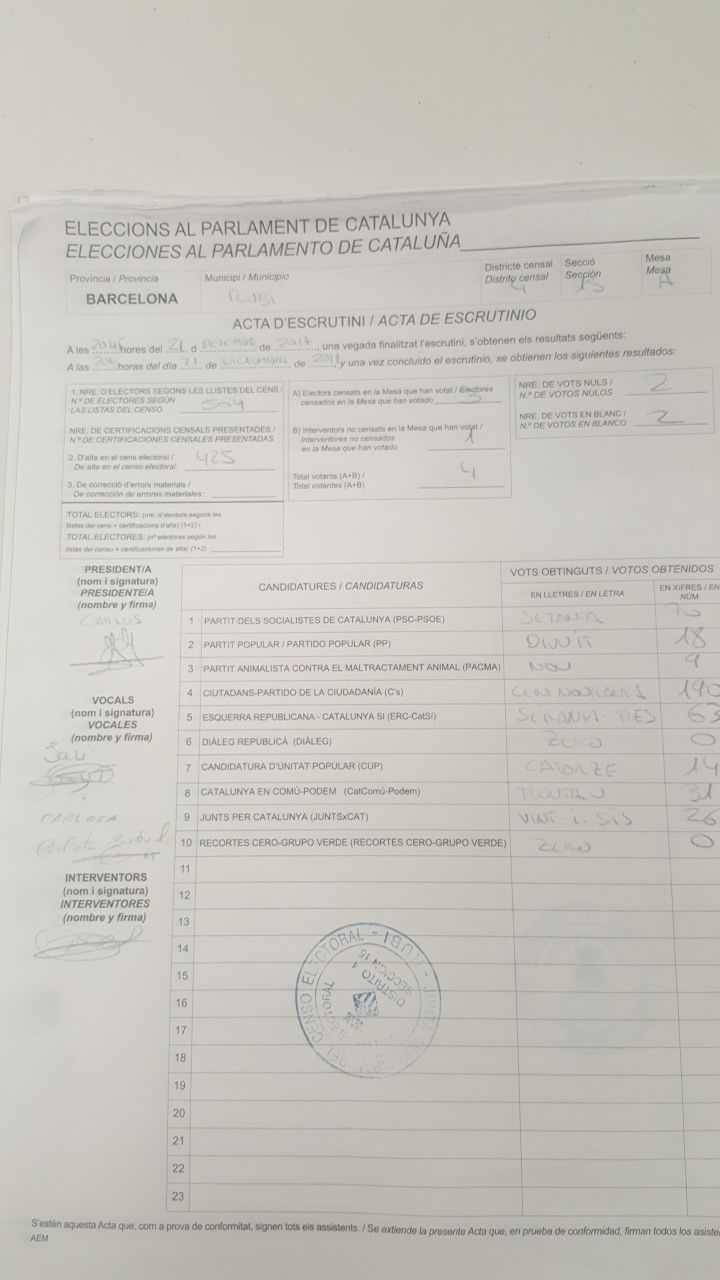 ELECCIONS AL PARLAMENT DE CATALUNYA
ELECCIONES AL PARLAMENTO DE CATALUÑA
Província / Provincia
Municipi / Municipio
Districte censal
Distrito censal
Secció
Sección
Mesa
Mesa
BARCELONA
RUBÍ
4
15
A
ACTA D'ESCRUTINI / ACTA DE ESCRUTINIO
A les 2045 hores del 21 d DESEMBRE de 2017, una vegada finalitzat l'escrutini, s'obtenen els resultats següents:
A las horas del día 21 de de 2017, y una vez concluido el escrutinio, se obtienen los siguientes resultados:
1. NRE. D'ELECTORS SEGONS LES LLISTES DEL CENS /
N.º DE ELECTORES SEGÚN
LAS LISTAS DEL CENSO
504
NRE. DE CERTIFICACIONS CENSALS PRESENTADES /
N.º DE CERTIFICACIONES CENSALES PRESENTADAS
2. D'alta en el cens electoral /
De alta en el censo electoral:
425
3. De correcció d'errors materials /
De corrección de errores materiales:
TOTAL ELECTORS: (nre. d'electors segons les
llistes del cens + certificacions d'alta) (1+2) /
TOTAL ELECTORES: (nº electores según las
listas del censo + certificaciones de alta) (1+2)
A) Electors censats en la Mesa que han votat / Electores
censados en la Mesa que han votado
3
B) Interventors no censats en la Mesa que han votat /
Interventores no censados
en la Mesa que han votado
1
Total votants (A+B) /
Total votantes (A+B)
4
NRE. DE VOTS NULS /
N.º DE VOTOS NULOS
2
NRE. DE VOTS EN BLANC /
N.º DE VOTOS EN BLANCO
2
PRESIDENT/A
(nom i signatura)
PRESIDENTE/A
(nombre y firma)
CARLOS
VOCALS
(nom i signatura)
VOCALES
(nombre y firma)
Javi
CARLOTA
Carlota
INTERVENTORS
(nom i signatura)
INTERVENTORES
(nombre y firma)
CANDIDATURES / CANDIDATURAS
VOTS OBTINGUTS / VOTOS OBTENIDOS
EN LLETRES / EN LETRA
EN XIFRES / EN
NÚM.
1 PARTIT DELS SOCIALISTES DE CATALUNYA (PSC-PSOE) SETANTA 70
2 PARTIT POPULAR / PARTIDO POPULAR (PP) DIVUIT 18
3 PARTIT ANIMALISTA CONTRA EL MALTRACTAMENT ANIMAL (PACMA) NOU 9
4 CIUTADANS-PARTIDO DE LA CIUDADANÍA (C's) CENT NORANTA 190
5 ESQUERRA REPUBLICANA - CATALUNYA SÍ (ERC-CatSí) SEIXANTA-TRES 63
6 DIÀLEG REPUBLICÀ (DIÀLEG) ZERO 0
7 CANDIDATURA D'UNITAT POPULAR (CUP) CATORZE 14
8 CATALUNYA EN COMÚ-PODEM (CatComú-Podem) TRENTA U 31
9 JUNTS PER CATALUNYA (JUNTSxCAT) VINT-I-SIS 26
10 RECORTES CERO-GRUPO VERDE (RECORTES CERO-GRUPO VERDE) ZERO 0
11
12
13
14
15
16
17
18
19
20
21
22
23
JUNTA DEL CENSO ELECTORAL - RUBI -
ELECTORAL
DISTRITO 4
SECCION 15
S'estén aquesta Acta que, com a prova de conformitat, signen tots els assistents. / Se extiende la presente Acta que, en prueba de conformidad, firman todos los asiste
AEM